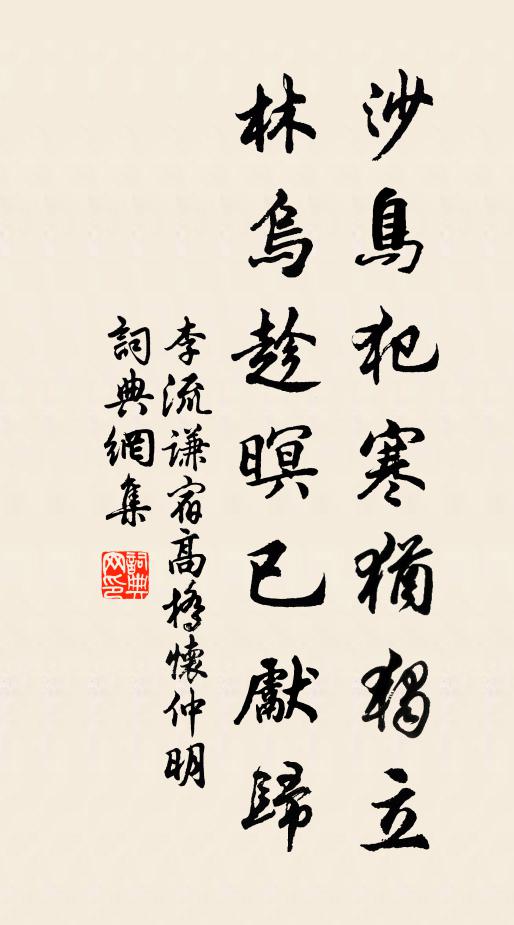 沙鳥犯寒猶獨立
林烏趁暝已獻歸
李流謙宿高橋懷仲明
詞典網集
詞典網印